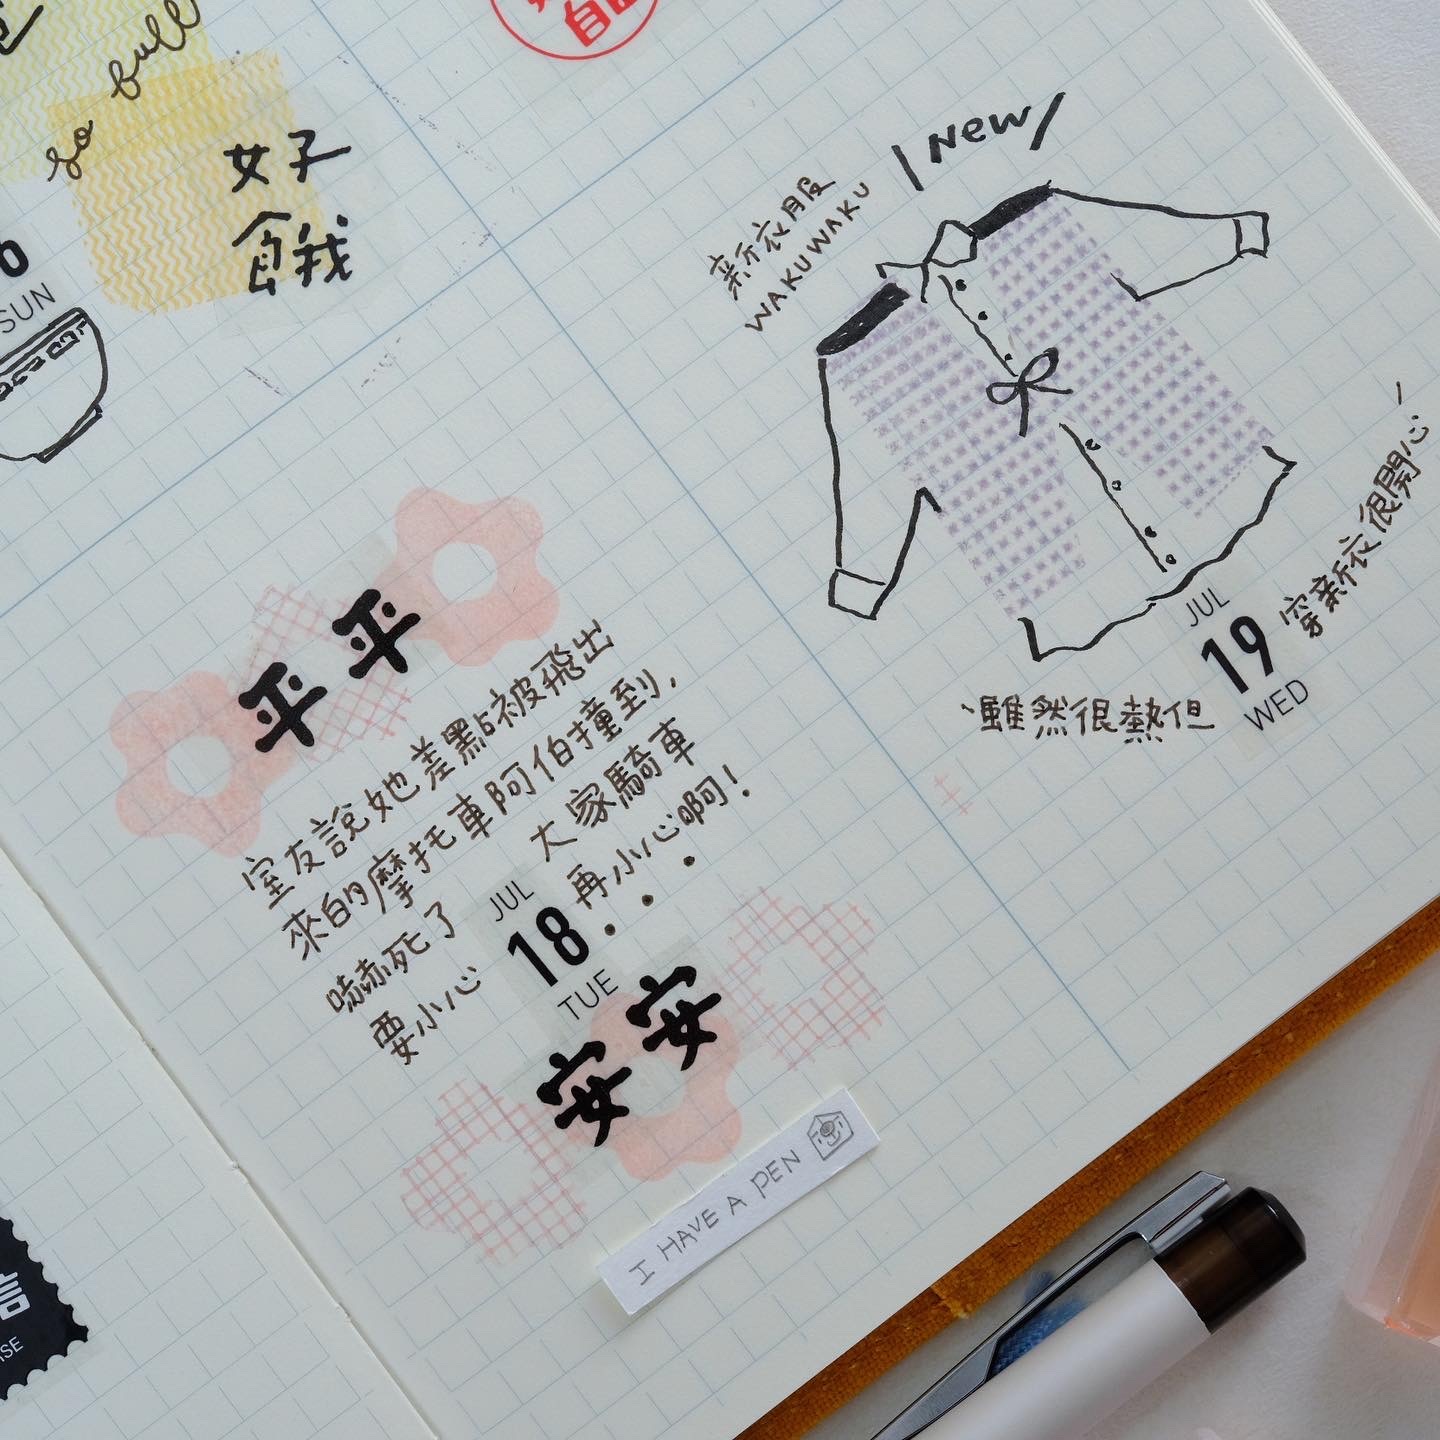 so full
女子
餓
SUN
自
NEW
新衣服
WAKUWAKU
JUL
19
WED
雖然很熱但
穿新衣很開心
平平
室友說她差點被飛出
來的摩托車阿伯撞到,
嚇死了 大家騎車
要小心 再小心啊!
JUL
18
TUE
安安
I HAVE A PEN
信